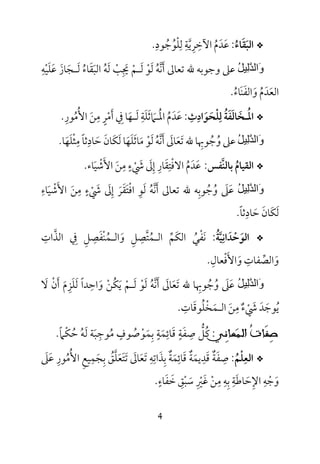 ❖ البَقَاءُ: عَدَمُ الآخِرِيَّةِ لِلْوُجُودِ.
وَالدَّلِيلُ على وجوبه لله تعالى أَنَّهُ لَوْ لَـمْ يَجِبْ لَهُ البَقَاءُ لَـجَـازَ عَلَيْهِ
العَدَمُ وَالفَنَاءُ.
❖ الْمُـخَالَفَةُ لِلْحَوَادِثِ: عَدَمُ الْمُـمَاثَلَةِ لَـهَـا فِي أَمْرٍ مِنَ الأُمُورِ.
وَالدَّلِيلُ على وُجُوبِها لله تَعَالَى أَنَّهُ لَوْ مَاثَلَهَا لَكَانَ حَادِثاً مِثْلَـهَا.
❖ القيامُ بالنَّفس: عَدَمُ الاِفْتِقَارِ إِلَى شَيْءٍ مِنَ الأَشْيَاء.
وَالدَّلِيلُ عَلَى وُجُوبِهِ لله تعالى أَنَّهُ لَوِ افْتَقَرَ إِلَى شَيْءٍ مِنَ الأَشْيَاءِ
لَكَانَ حَادِثاً.
❖ الوَحْدَانِيَّةُ: نَفْيُ الكَمِّ الـمُـتَّصِلِ وَالـمُنْفَصِلِ فِي الذَّاتِ
وَالصِّفاتِ وَالأَفْعالِ.
وَالدَّلِيلُ عَلَى وُجُوبِها لله تَعَالَى أَنَّهُ لَوْ لَـمْ يَكُنْ وَاحِداً لَلَزِمَ أَنْ لَا
يُوجَدَ شَيْءٌ مِنَ الـمَـخْلُوقَاتِ.
صِفَاتُ المَعانِي: كُلُّ صِفَةٍ قَائِمَةٍ بِمَوْصُوفٍ مُوجِبَةٍ لَهُ حُكْماً.
❖ العِلْمُ: صِفَةٌ قَدِيمَةٌ قَائِمَةٌ بِذَاتِهِ تَعَالَى تَتَعَلَّقُ بِجَمِيعِ الأُمُورِ عَلَى
وَجْهِ الإِحَاطَةِ بِهِ مِنْ غَيْرِ سَبْقِ خَفَاءٍ.
4